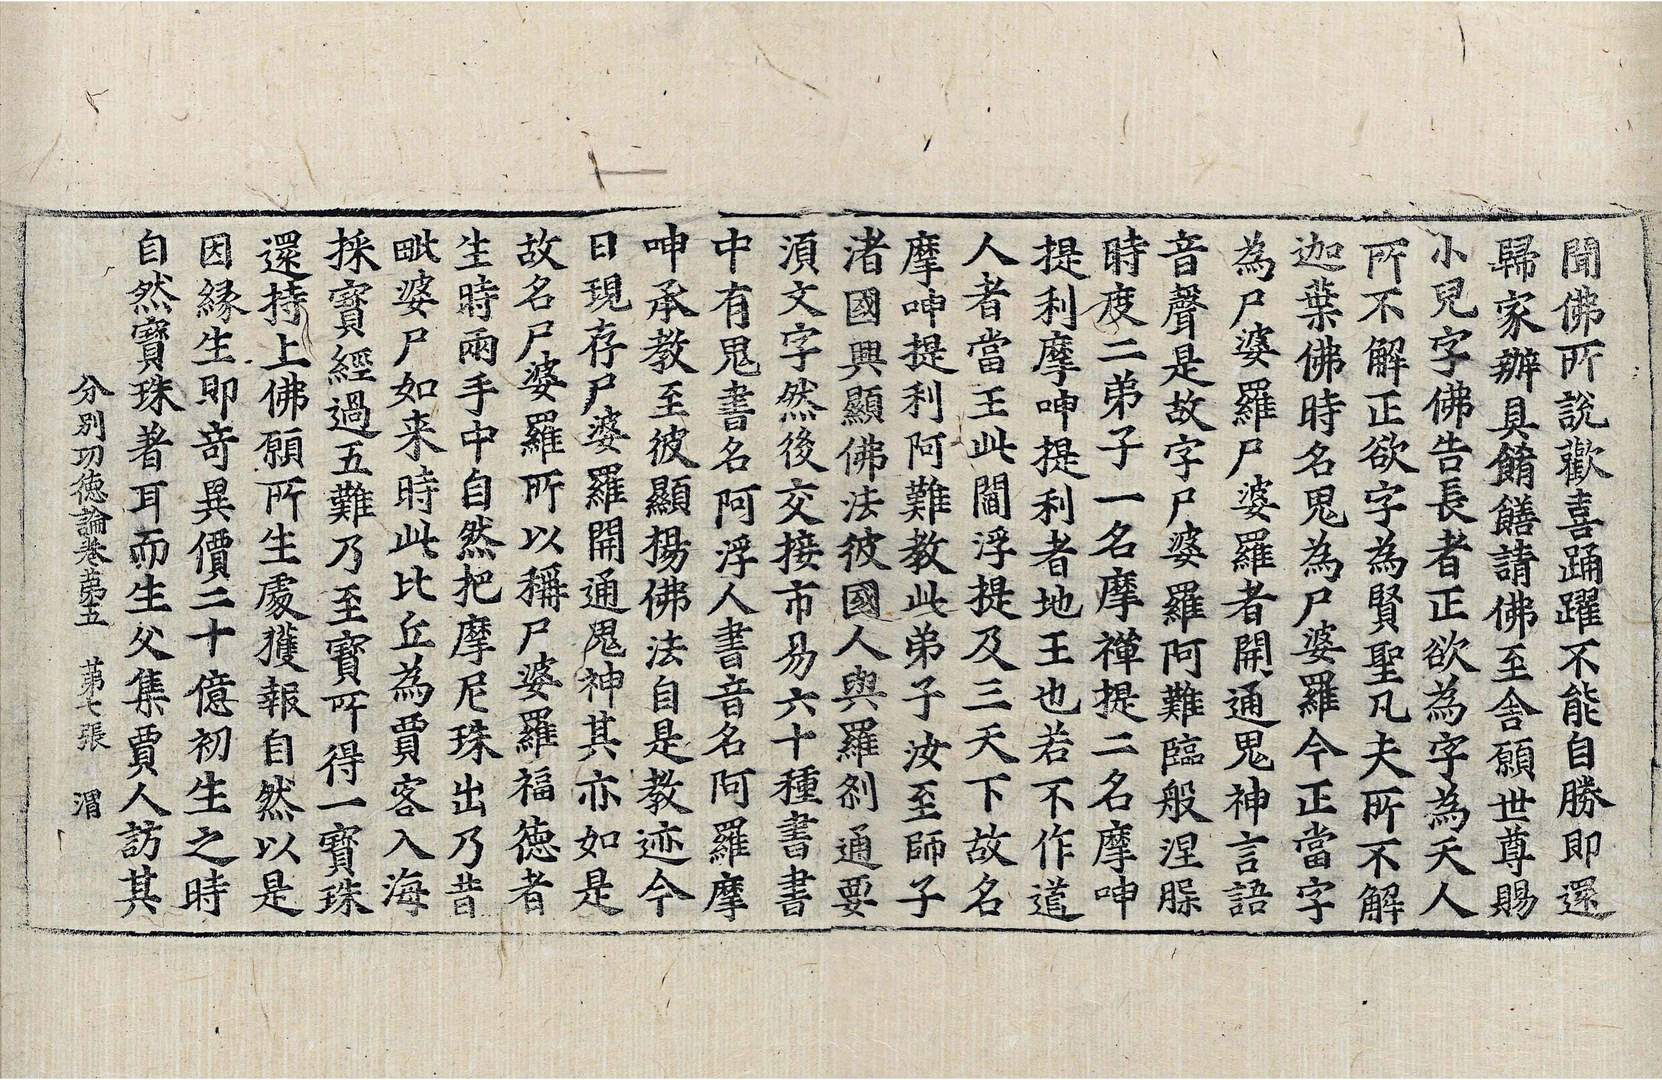 聞佛所說歡喜踊躍不能自勝即還
歸家辦具餚饍請佛至舍願世尊賜
小兒字佛告長者正欲為字為天人
所不解正欲字為賢聖凡夫所不解
迦葉佛時名鬼為尸婆羅今正當字
為尸婆羅尸婆羅者開通鬼神言語
音聲是故字尸婆羅阿難臨般涅槃
時度二弟子一名摩禪提二名摩呻
提利摩呻提利者地王也若不作道
人者當王此閻浮提及三天下故名
摩呻提利阿難教此弟子汝至師子
渚國興顯佛法彼國人與羅剎通要
須文字然後交接市易六十種書書
中有鬼書名阿浮人書音名阿羅摩
呻承教至彼顯揚佛法自是教迹今
日現存尸婆羅開通鬼神其亦如是
故名尸婆羅所以稱尸婆羅福德者
生時兩手中自然把摩尼珠出乃昔
毗婆尸如来時此比丘為賈客入海
採寶經過五難乃至寶所得一寶珠
還持上佛願所生處獲報自然以是
因緣生即奇異價二十億初生之時
自然寶珠著耳而生父集賈人訪其
分別功德論卷苐五 苐七張 渭